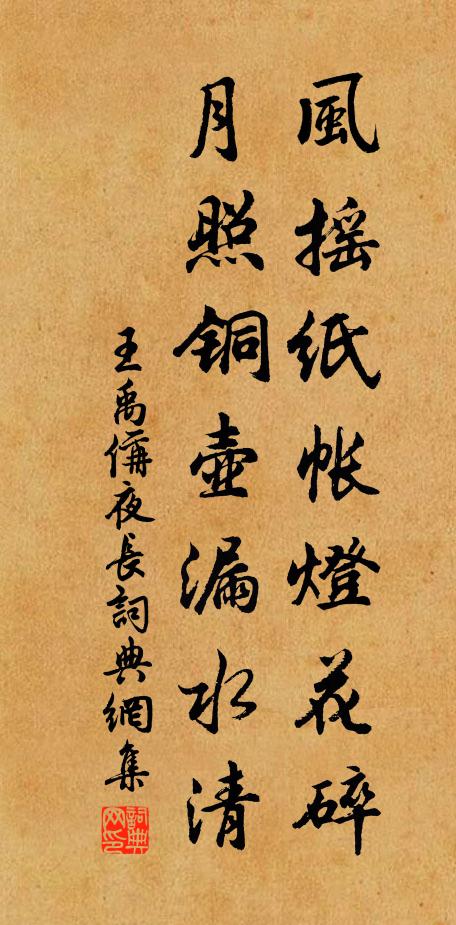 風搖紙帳燈花碎
月照銅壺漏水清
王禹偁夜長詞典網集
詞典网印